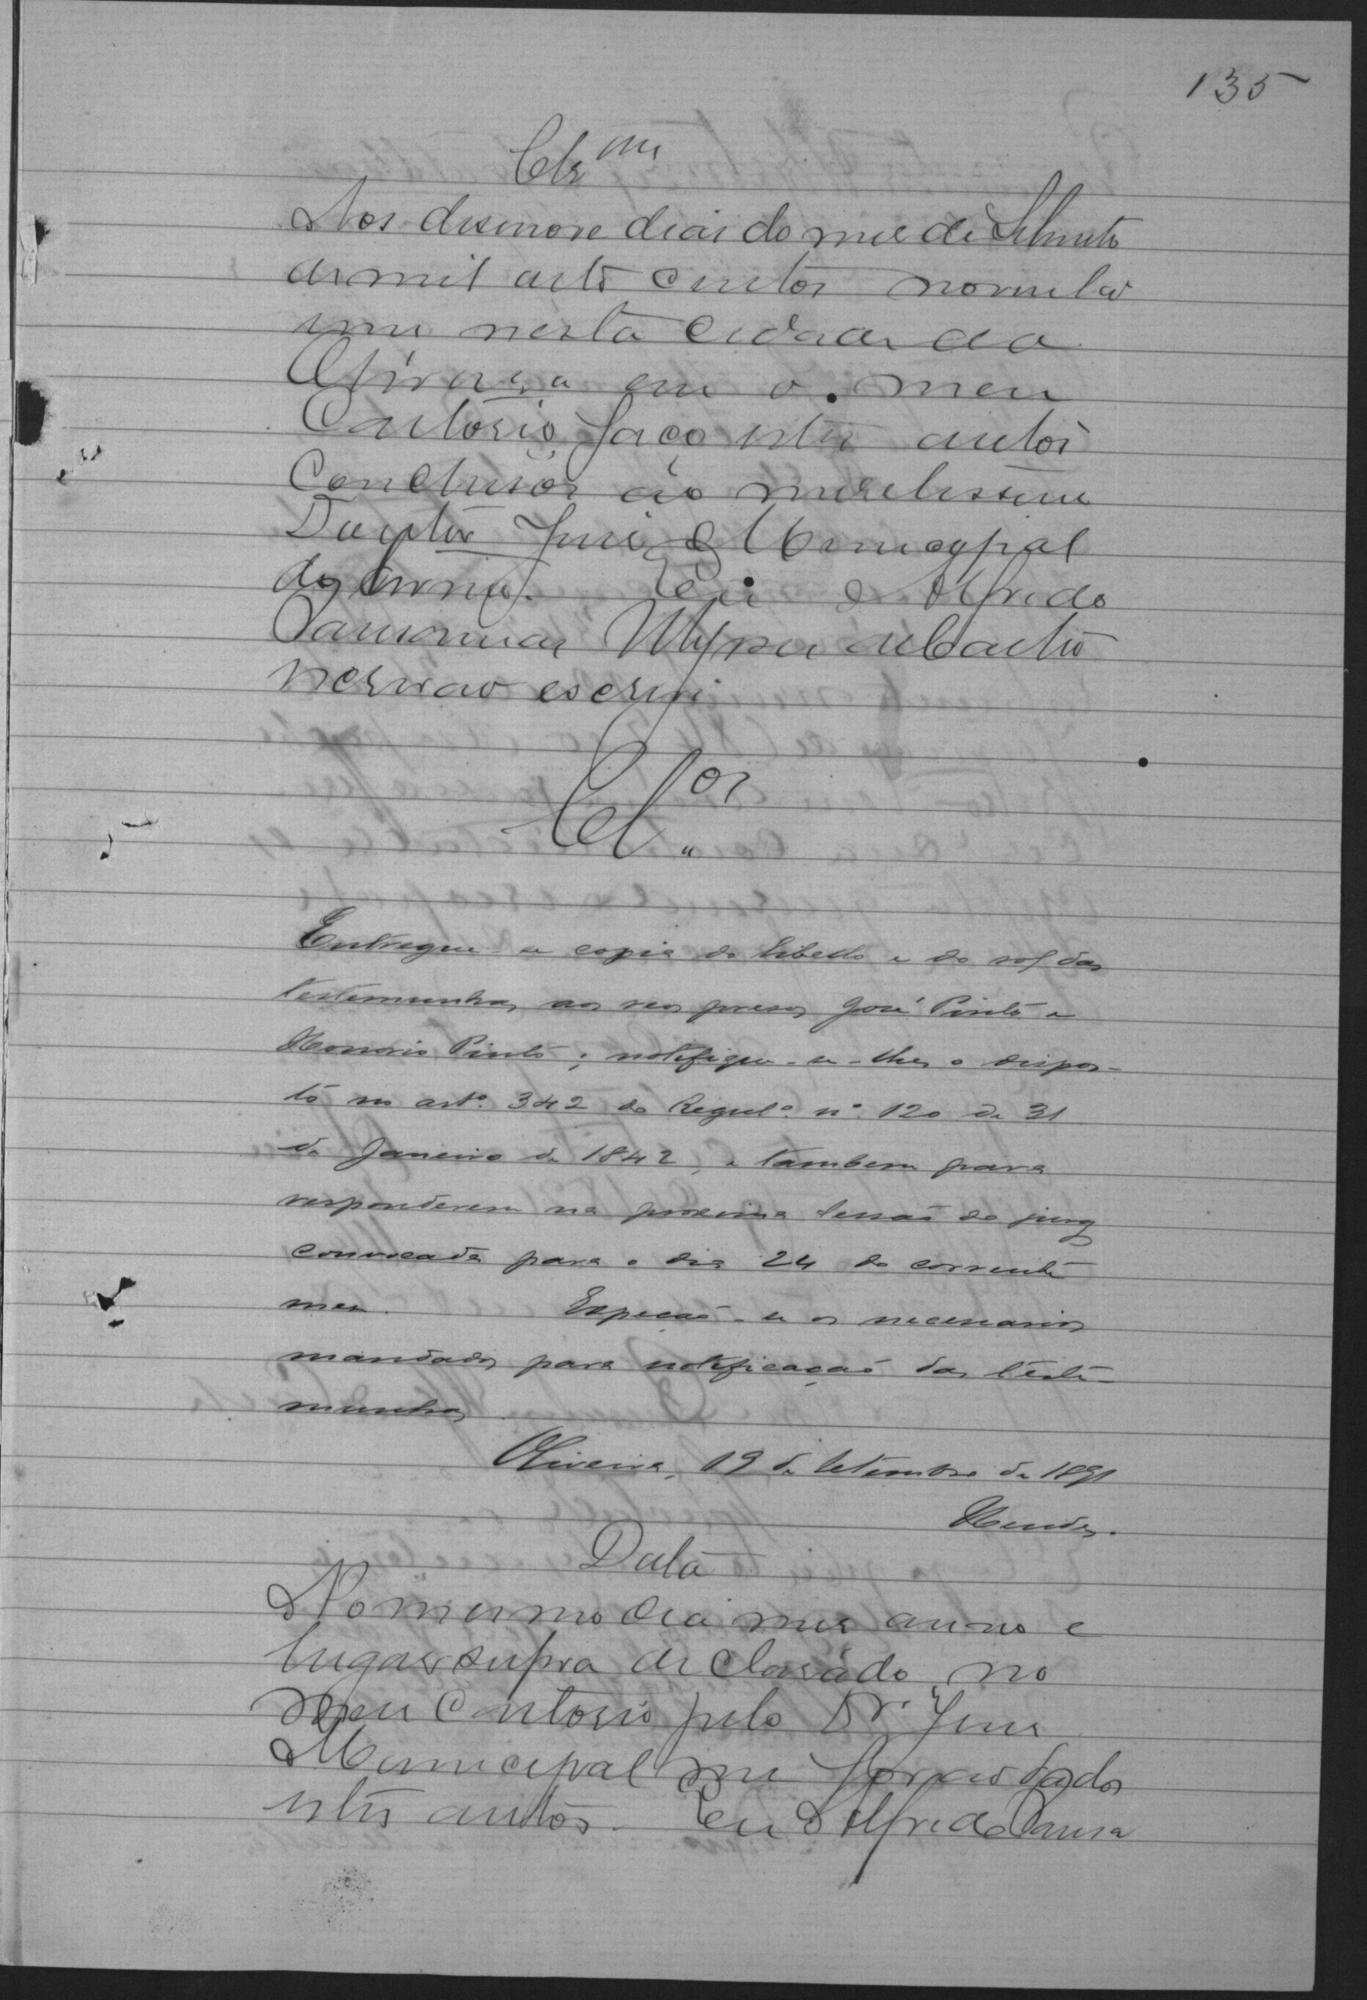 135
Aos desenove dias do mes de Setembro
de mil oito centos noventa e
um nesta Cidade da
Oliveira em o meu
Cartorio faço estes autos
Conclusos ao meretissimo
Doutor Juis Municipal
do termo. Eu Alfredo
de Castro
escrivão escrevi
Cl.os
Entregue-se copia do libello e do rol das
testemunhas aos reos presos José Pinto e
Honorio Pinto; notifique-se-lhes o dispos-
to no artº. 342 do Regulº. nº. 120 de 31
de Janeiro de 1842, e tambem para
responderem na proxima sessaõ do jury
convocada para o dia 24 do corrente
mez. Expeçaõ-se os necessarios
mandados para notificaçaõ das teste-
munhas
Oliveira, 19 de Setembro de 1891
Mendes.
Data
No mesmo dia mes anno e
lugar supra declarado, no
meu Cartorio pelo Dr. Juis
Municipal me foraō dados
estes autos. Eu Alfredo